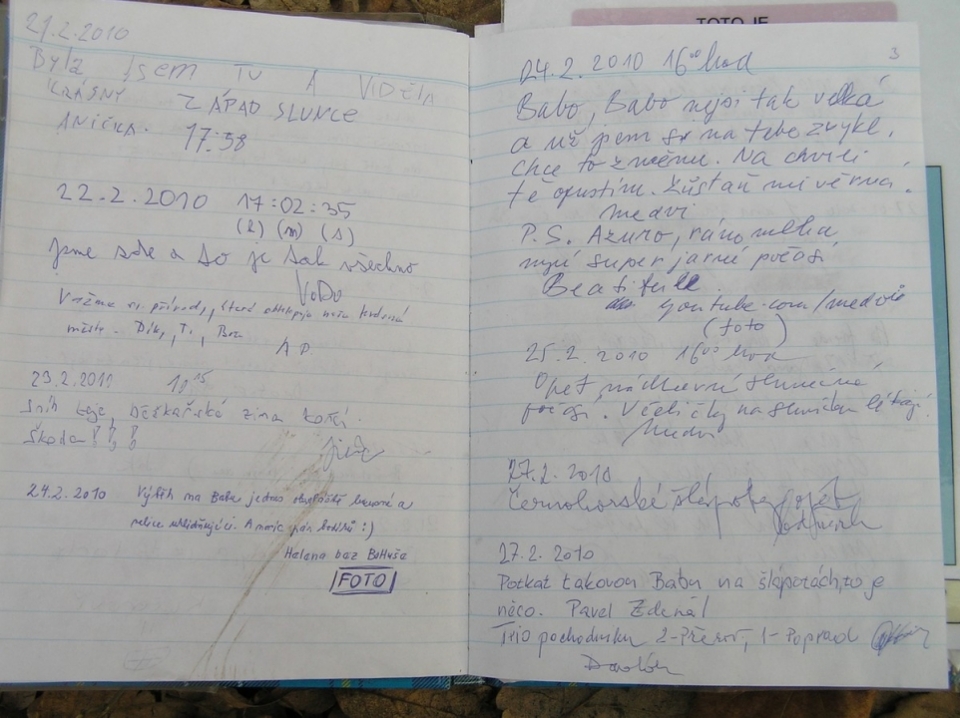 21.2.2010
Byla jsem tu a viděla
krásný západ slunce
Anička. 17:58
22.2.2010 17:02:35
(h) (m) (s)
jsme zde a to je tak všechno
VoDo
města - Dík,
AP
23.2.2010 10 15
Sníh taje, běžkařská zima končí.
Škoda!!!
24.2.2010 Výšlap na Babu jednos
:)
Helena bez Bohuša
FOTO
TOTO JE
3
24.2.2010 16 00 hod
Babo, Babo nejsi tak velká
a už jsem si na tebe zvykl,
chce to změnu. Na chvíli
tě opustím. Zůstaň mi věrná.
medvi
P.S. Azuro, ráno mlha
nyní super jarné počasí
Beatifull.
youtube.com/medvie
(foto)
25.2.2010 16 00 hod
Opět nádherné slunečné
počasí. Včeličky na sluníčku létají!
Medvi
27.2.2010
Černohorské šlápoty opět
27.2.2010
Potkat takovou Babu na šlápotách, to je
něco. Pavel Zdenál
Trio pochodniku 2-Přerov, 1-Poprad